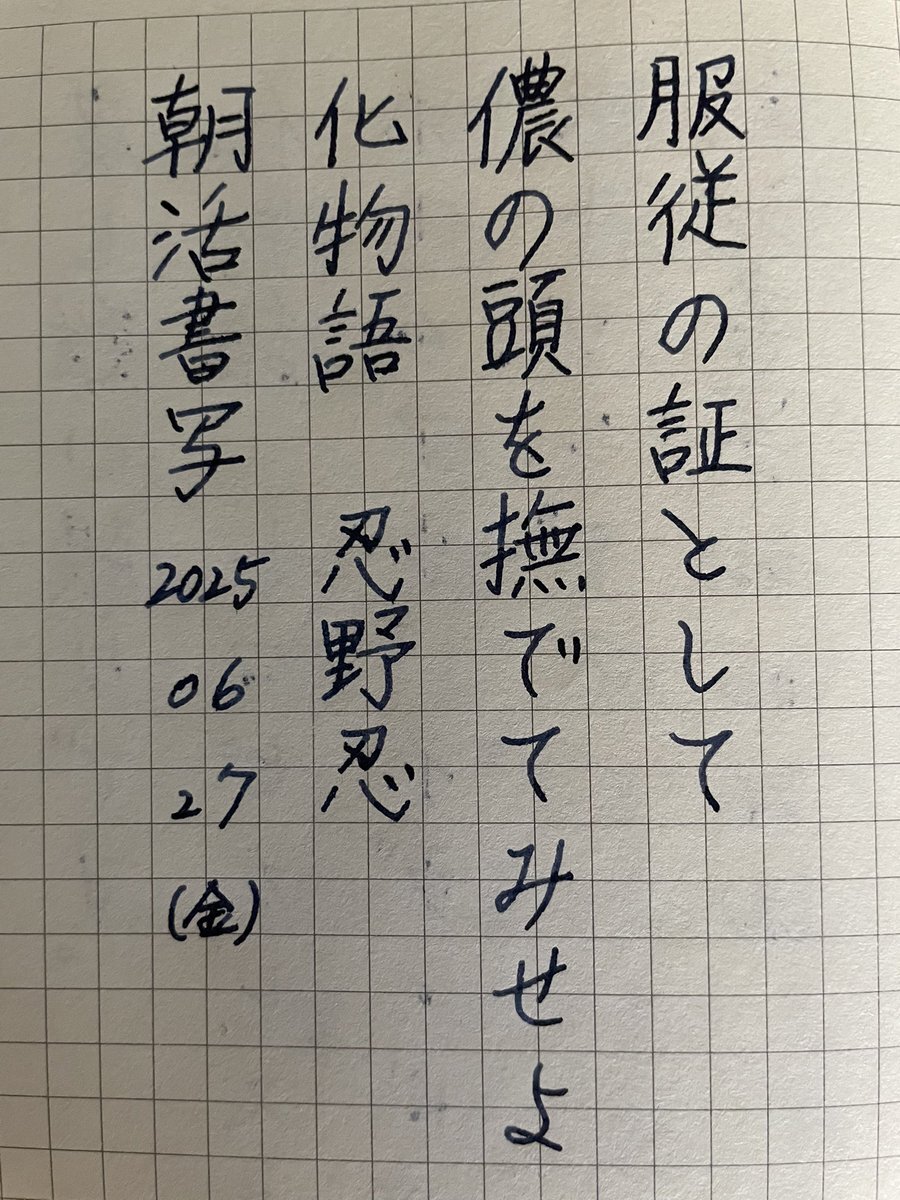 服従の証として
儂の頭を撫でてみせよ
化物語 忍野忍
朝活書写 2025 06 27 (金)